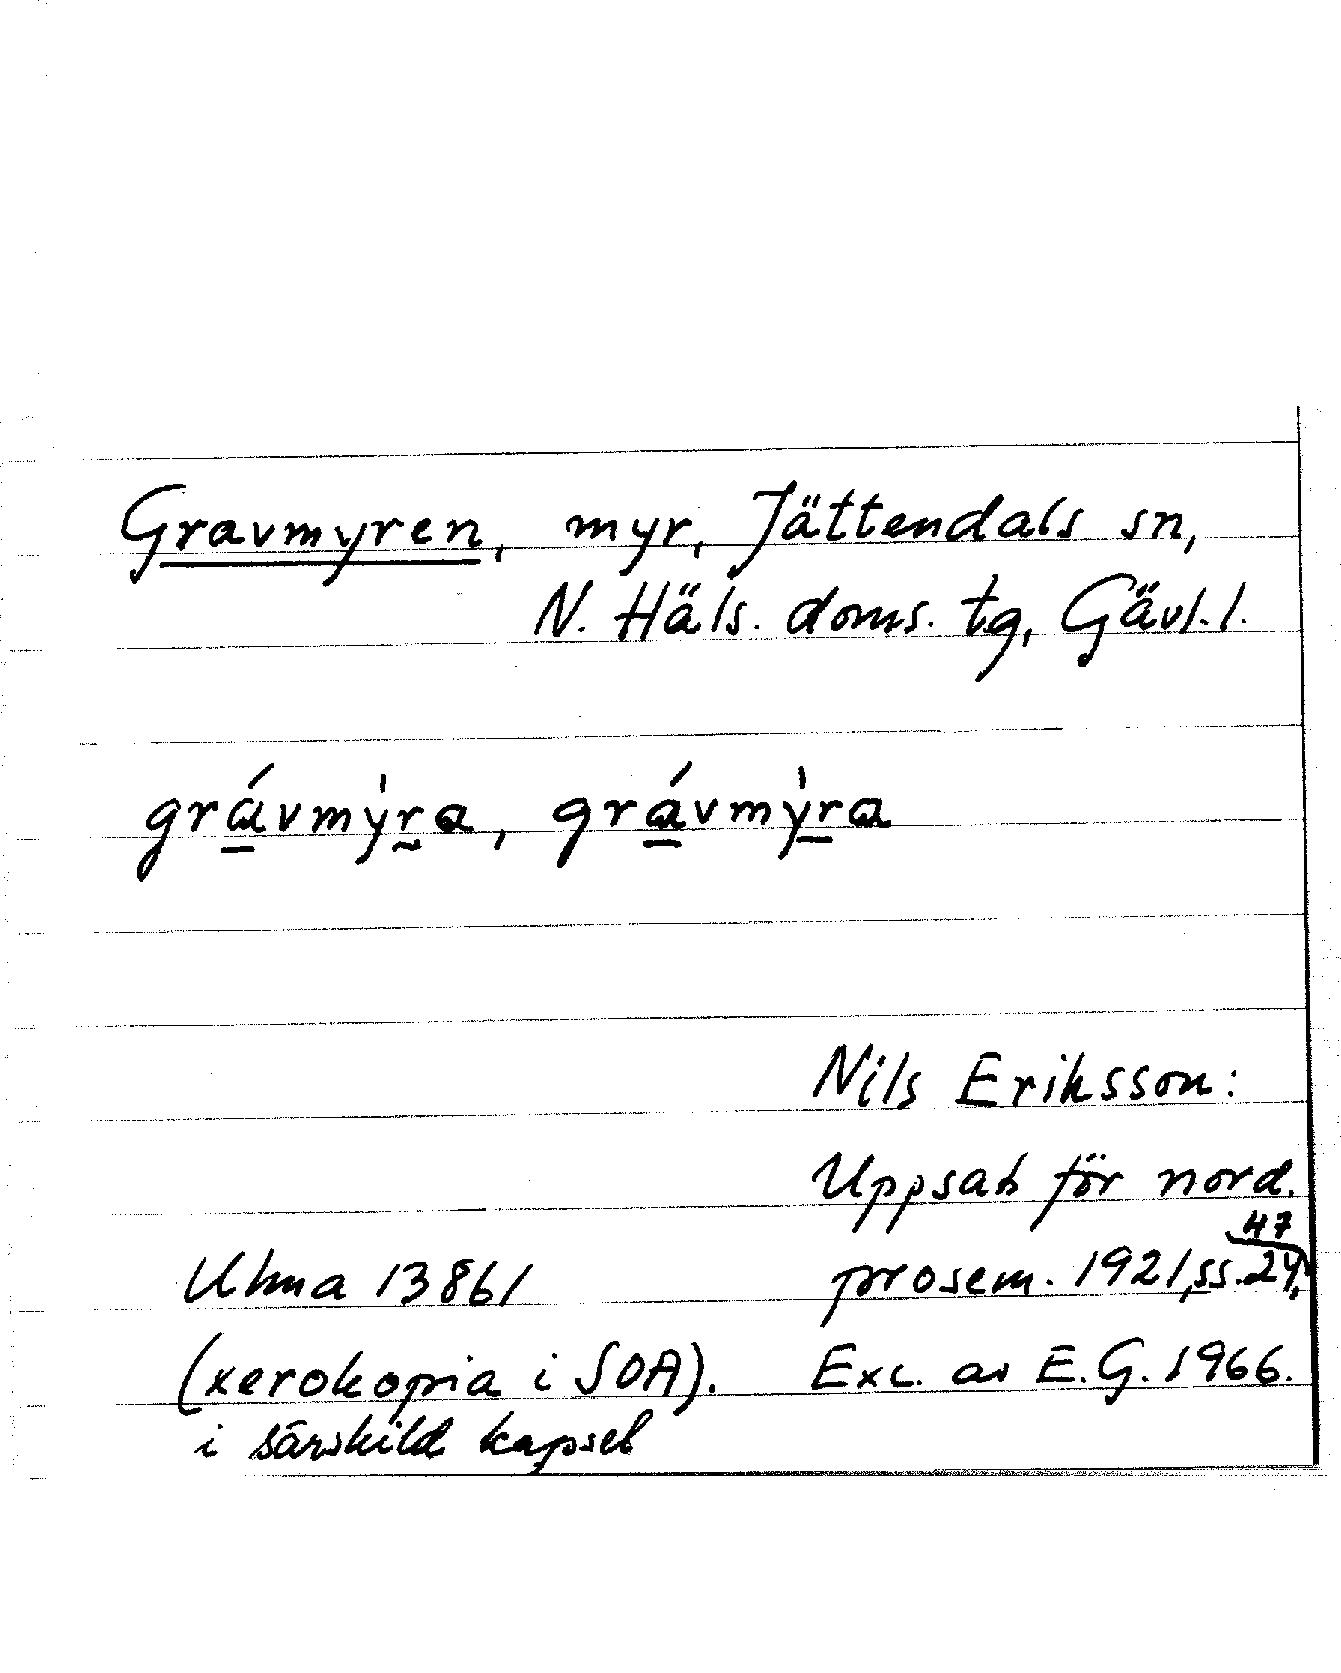 Gravmyren, myr, Jättendals sn,
N. Häls. doms. tg, Gävl. l.
grávmỳra, grávmỳra
Nils Eriksson:
Uppsats för nord.
prosem. 1921, ss. 24, 47
Ulma 13861
(xerokopia i SOA). Exc. av E.G. 1966.
i särskild kapsel